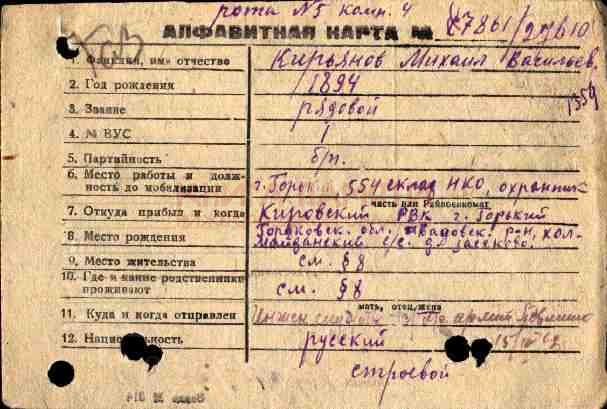 рота №5 комн. 4
АЛФАВИТНАЯ КАРТА №
1. Фамилия, имя, отчество Кирьянов Михаил Васильев.
2. Год рождения 1894
3. Звание рядовой
4. № ВУС 1
5. Партийность б/п.
6. Место работы и долж-
ность до мобилизации г. Горький, 554 склад НКО, охранник
часть или Райвоенкомат
7. Откуда прибыл и когда Кировский РВК г. Горький
Горьковск. обл. Ивановск. р-н, кол-
8. Место рождения майданский с/с. д. Засеково.
9. Место жительства см. § 8
10. Где и какие родственники
проживают см. § 8
мать, отец, жена
11. Куда и когда отправлен армии
12. Национальность русский
строевой